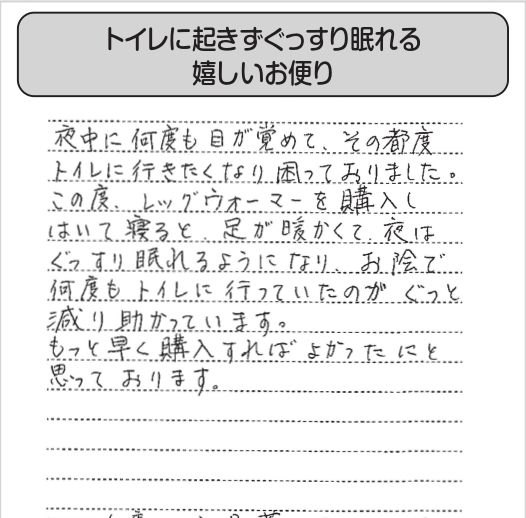 トイレに起きずぐっすり眠れる
嬉しいお便り
夜中に何度も目が覚めて、その都度
トイレに行きたくなり困っておりました。
この度、レッグウォーマーを購入し
はいて寝ると、足が暖かくて、夜は
ぐっすり眠れるようになり、お陰で
何度もトイレに行っていたのがぐっと
減り助かっています。
もっと早く購入すればよかったにと
思っております。